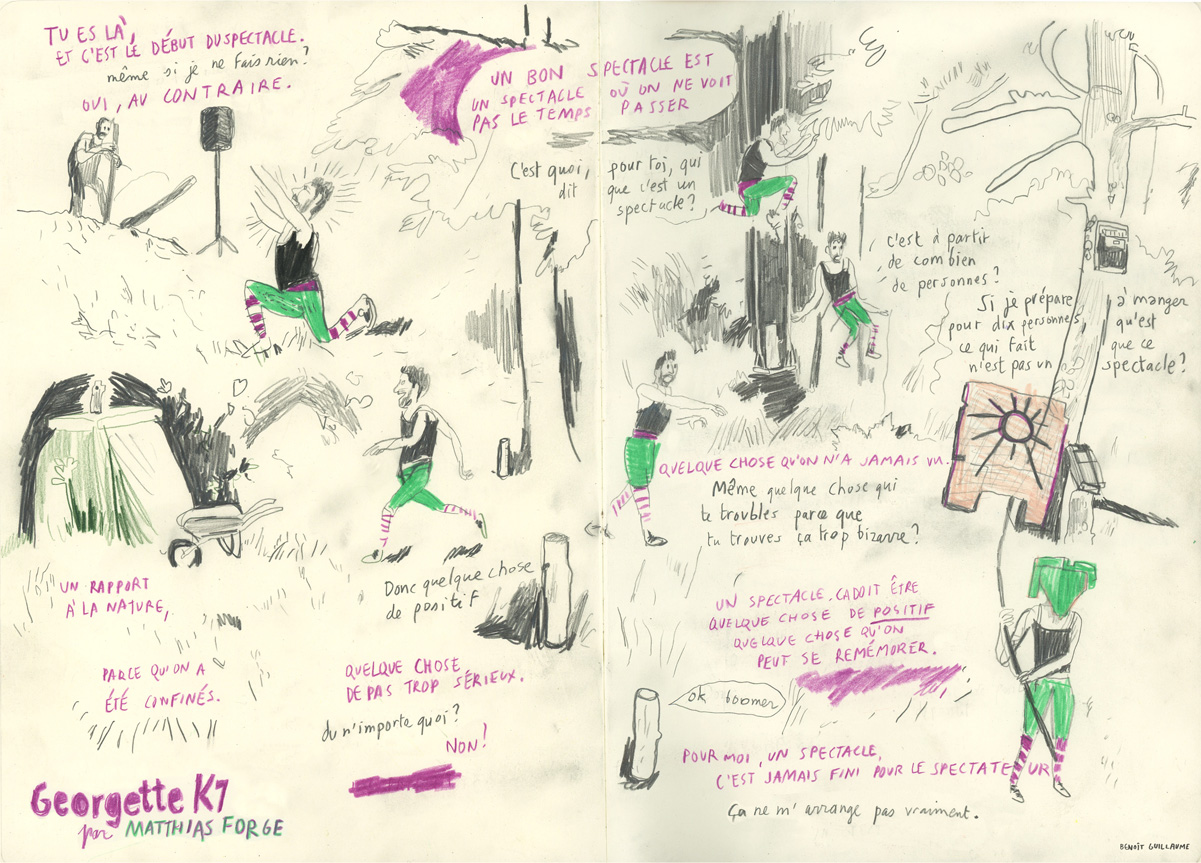 TU ES LÀ,
ET C'EST LE DÉBUT DU SPECTACLE.
même si je ne fais rien?
OUI, AU CONTRAIRE.
UN BON SPECTACLE EST
UN SPECTACLE OÙ ON NE VOIT
PAS LE TEMPS PASSER
C'est quoi, pour toi, qui
dit que c'est un
spectacle?
c'est à partir
de combien
de personnes?
Si je prépare à manger
pour dix personnes, qu'est
ce qui fait que ce
n'est pas un spectacle?
QUELQUE CHOSE QU'ON N'A JAMAIS VU.
Même quelque chose qui
te troubles parce que
tu trouves ça trop bizarre?
UN RAPPORT
À LA NATURE,
PARCE QU'ON A
ÉTÉ CONFINÉS.
Donc quelque chose
de positif
QUELQUE CHOSE
DE PAS TROP SÉRIEUX.
du n'importe quoi?
NON!
UN SPECTACLE, ÇA DOIT ÊTRE
QUELQUE CHOSE DE POSITIF
QUELQUE CHOSE QU'ON
PEUT SE REMÉMORER.
ok boomer
POUR MOI, UN SPECTACLE,
C'EST JAMAIS FINI POUR LE SPECTATEUR
Ça ne m'arrange pas vraiment.
Georgette K7
par MATTHIAS FORGE
BENOÎT GUILLAUME